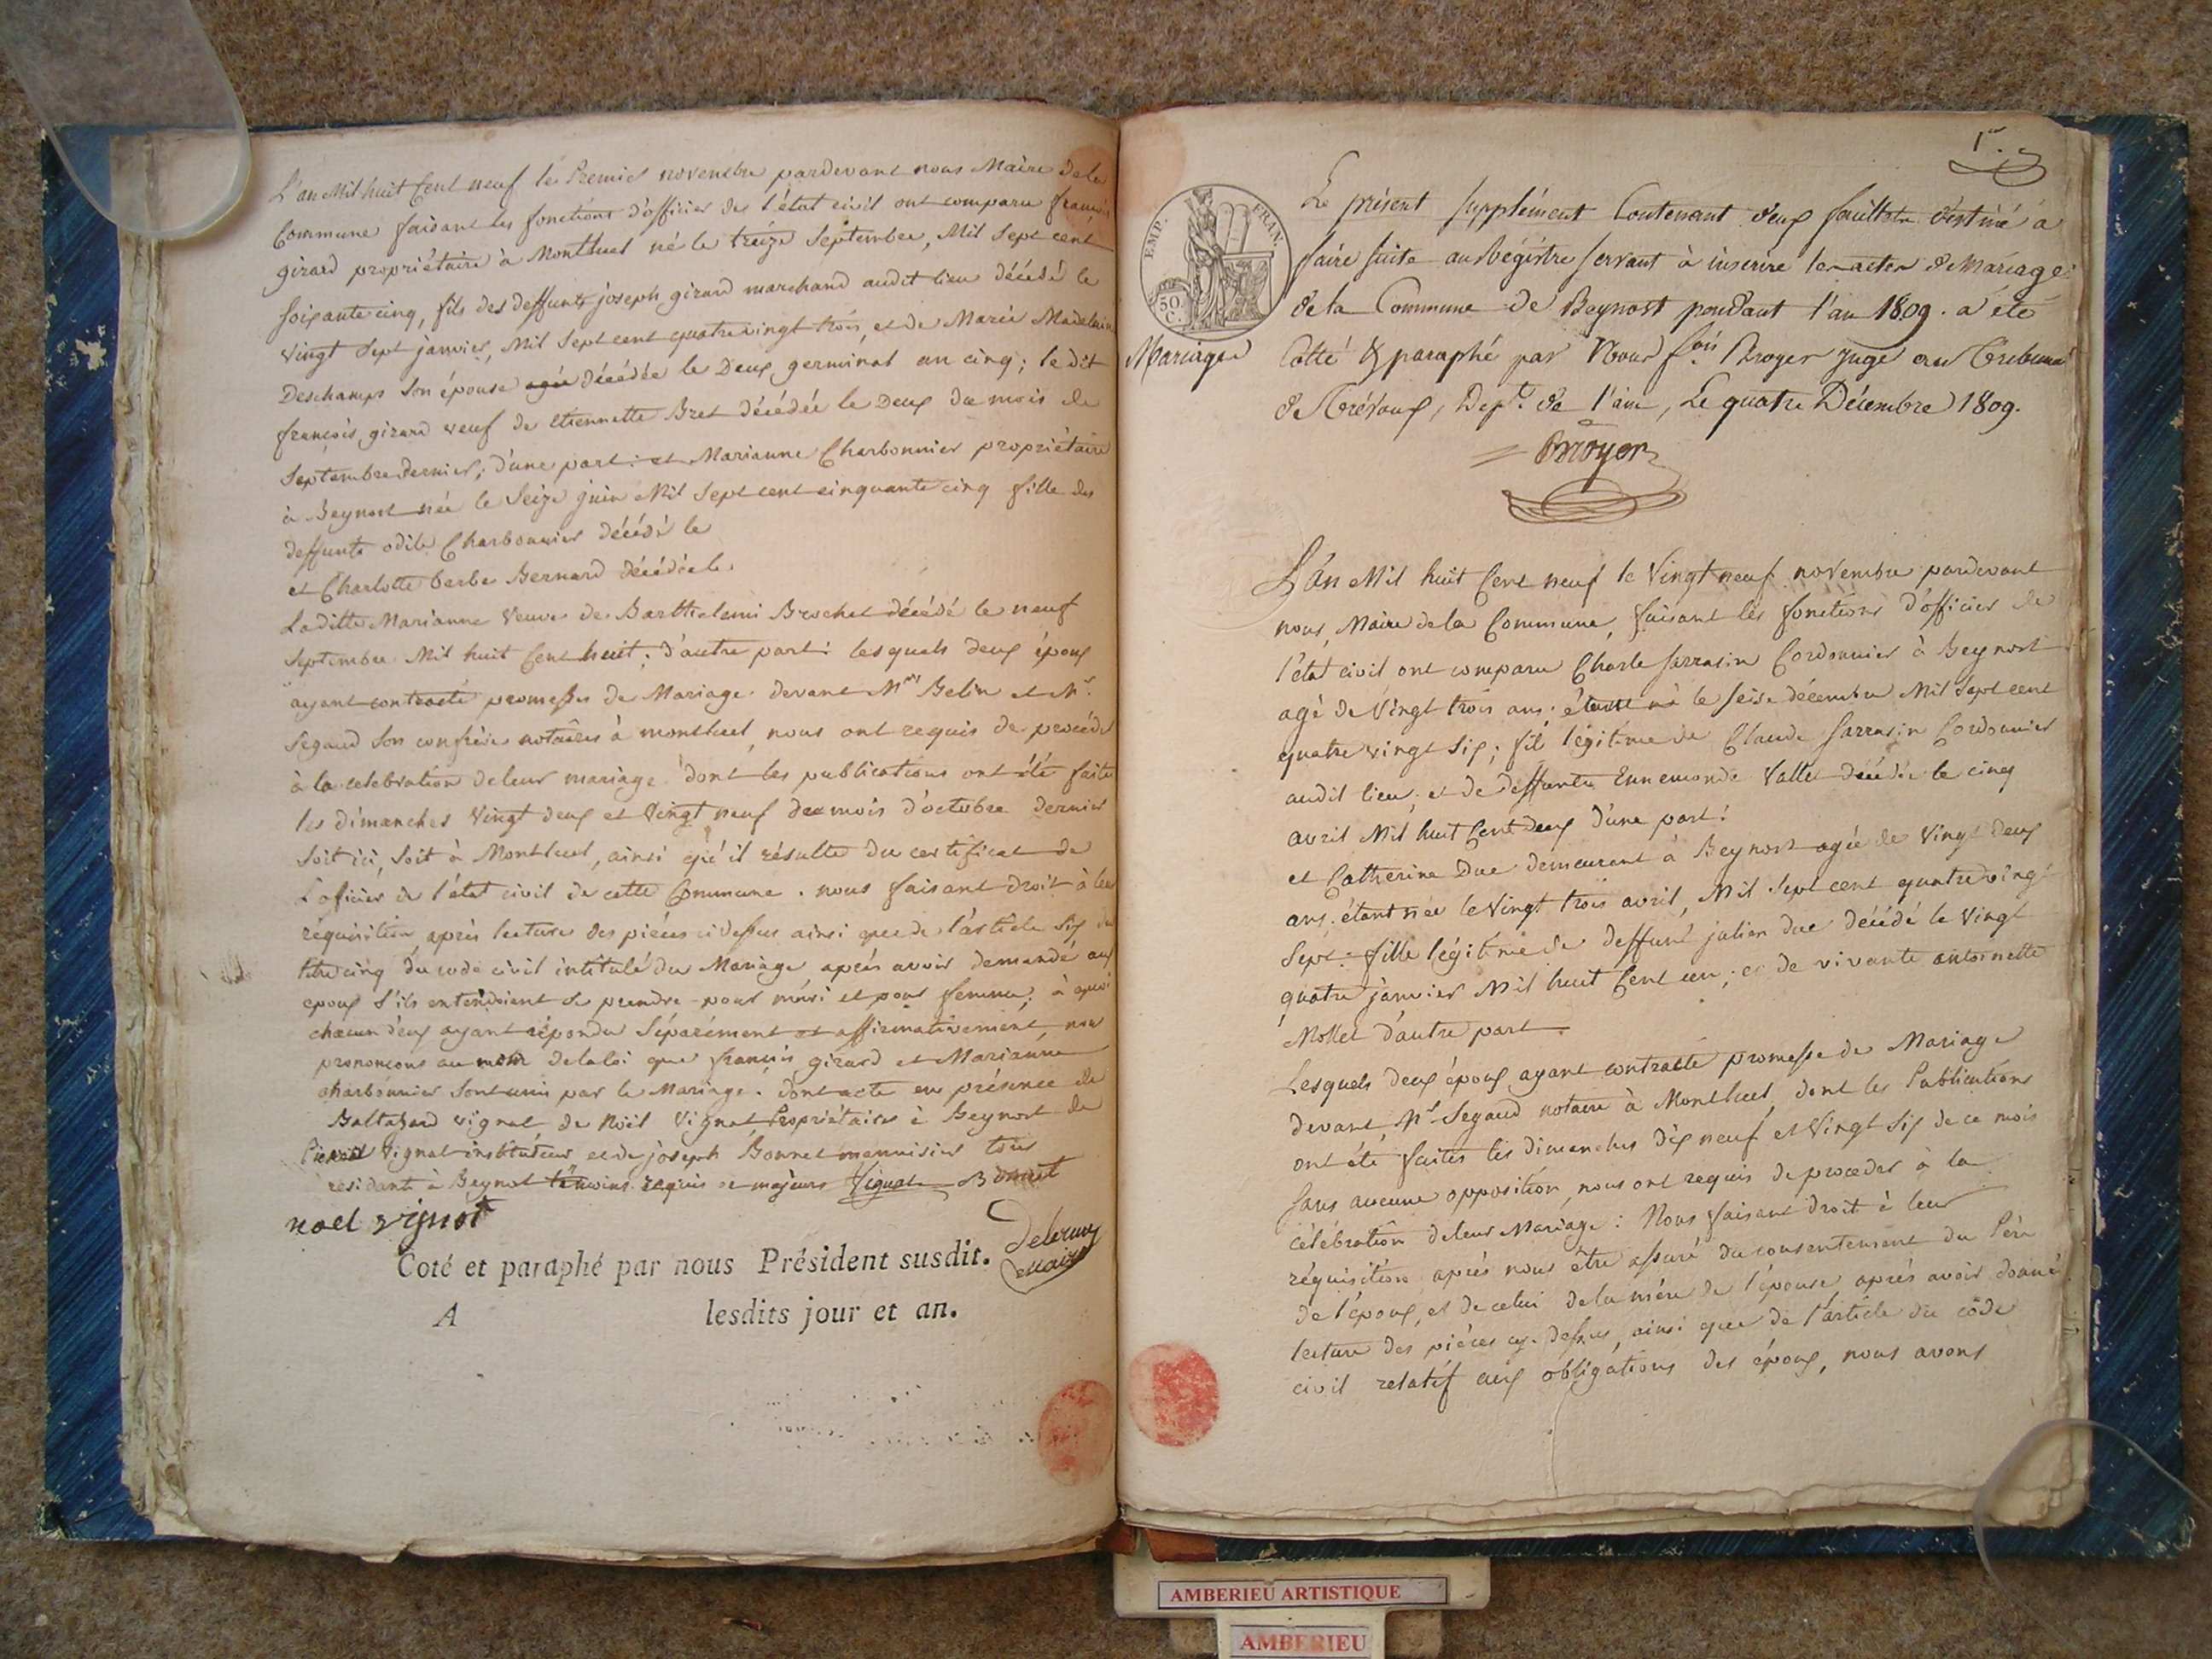 L'an Mil huit Cent neuf le Premier novembre pardevant nous Maire de la
Commune faisant les fonctions d'officier de l'état civil ont comparu françois
girard propriétaire à Montluel né le treize Septembre, Mil Sept cent
soixante cinq, fils des deffunts joseph girard marchand audit lieu décédé le
vingt Sept janvier, Mil Sept cent quatre vingt trois, et de Marie Madelaine
Deschamps Son épouse agée décédée le Deux germinal an cinq; le dit
françois girard veuf de Etiennette Bret décédée le Deux du mois de
Septembre dernier; d'une part: et Marianne Charbonnier propriétaire
à Beynost née le Seize juin Mil Sept cent cinquante cinq fille des
deffunts odile Charbonnier décédé le
et Charlotte barbe Bernard décédée le
Laditte Marianne veuve de Barthelemi Brochet décédé le neuf
Septembre Mil huit Cent huit; d'autre part: lesquels deux époux
ayant contracté promesses de Mariage devant Mrs Belin et Mr.
Segaud Son confrère notaires à montluel, nous ont requis de procéder
à la celebration de leur mariage dont les publications ont été faites
les dimanches Vingt deux et Vingt neuf du mois d'octobre dernier
Soit ici, Soit à Montluel, ainsi qu'il résulte du certificat de
L'oficier de l'état civil de cette Commune. nous faisant droit à leur
réquisition, après lecture des pièces ci dessus ainsi que de l'article Six du
titre cinq du code civil intitulé du Mariage après avoir demandé aux
epoux S'ils entendoient se prendre pour mari et pour femme; à quoi
chacun d'eux ayant répondu Séparément et affirmativement, nous
prononçons au nom de la loi que françois girard et Marianne
charbonnier Sont unis par le Mariage. dont acte en présence de
Baltazard vignat de Noël Vignat Propriétaires à Beynost de
Vignat instituteur et de joseph Bonnet menuisier tous
residants à Beynost témoins requis et majeurs Vignat Bonnet
noel vignat
Maire
Coté et paraphé par nous Président susdit.
A lesdits jour et an.
1er.
EMP. FRAN.
50. C.
Le présent supplément Contenant deux feuillets destiné à
faire suite au Régistre servant à inscrire les actes de Mariage
de la Commune de Beynost pendant l'an 1809. a été
Mariages
Cotté & paraphé par Nous fois. Broyer Juge au Tribunal
de Trévoux, Dept. de l'ain, Le quatre Décembre 1809.
Broyer
L'An Mil huit Cent neuf le Vingt neuf novembre pardevant
nous, Maire de la Commune, faisant les fonctions d'officier de
l'état civil ont comparu Charle Sarrasin Cordonnier à Beynost
agé de Vingt trois ans. étant né le seize décembre Mil Sept cent
quatre vingt Six; fil légitime de Claude Sarrasin Cordonnier
audit lieu; et de deffunte Ennemonde Vallet décédée le cinq
avril Mil huit Cent deux d'une part:
et Catherine Duc demeurant à Beynost agée de Vingt deux
ans. étant née le Vingt trois avril, Mil Sept cent quatre vingt
Sept: fille légitime de deffunt julien duc décédé le Vingt
quatre janvier Mil huit Cent un; et de vivante antoinette
Mollet d'autre part.
Lesquels deux époux ayant contracté promesse de Mariage
devant Mr Segaud notaire à Montluel, dont les Publications
ont été faites les dimanches dix neuf et Vingt Six de ce mois
Sans aucune opposition, nous ont requis de proceder à la
célébration de leur Mariage: Nous faisant droit à leur
réquisition après nous être assuré du consentement du Père
de l'époux, et de celui de la mère de l'épouse après avoir donné
lecture des pièces cy-dessus, ainsi que de l'article du code
civil relatif aux obligations des époux, nous avons
AMBERIEU ARTISTIQUE
AMBERIEU